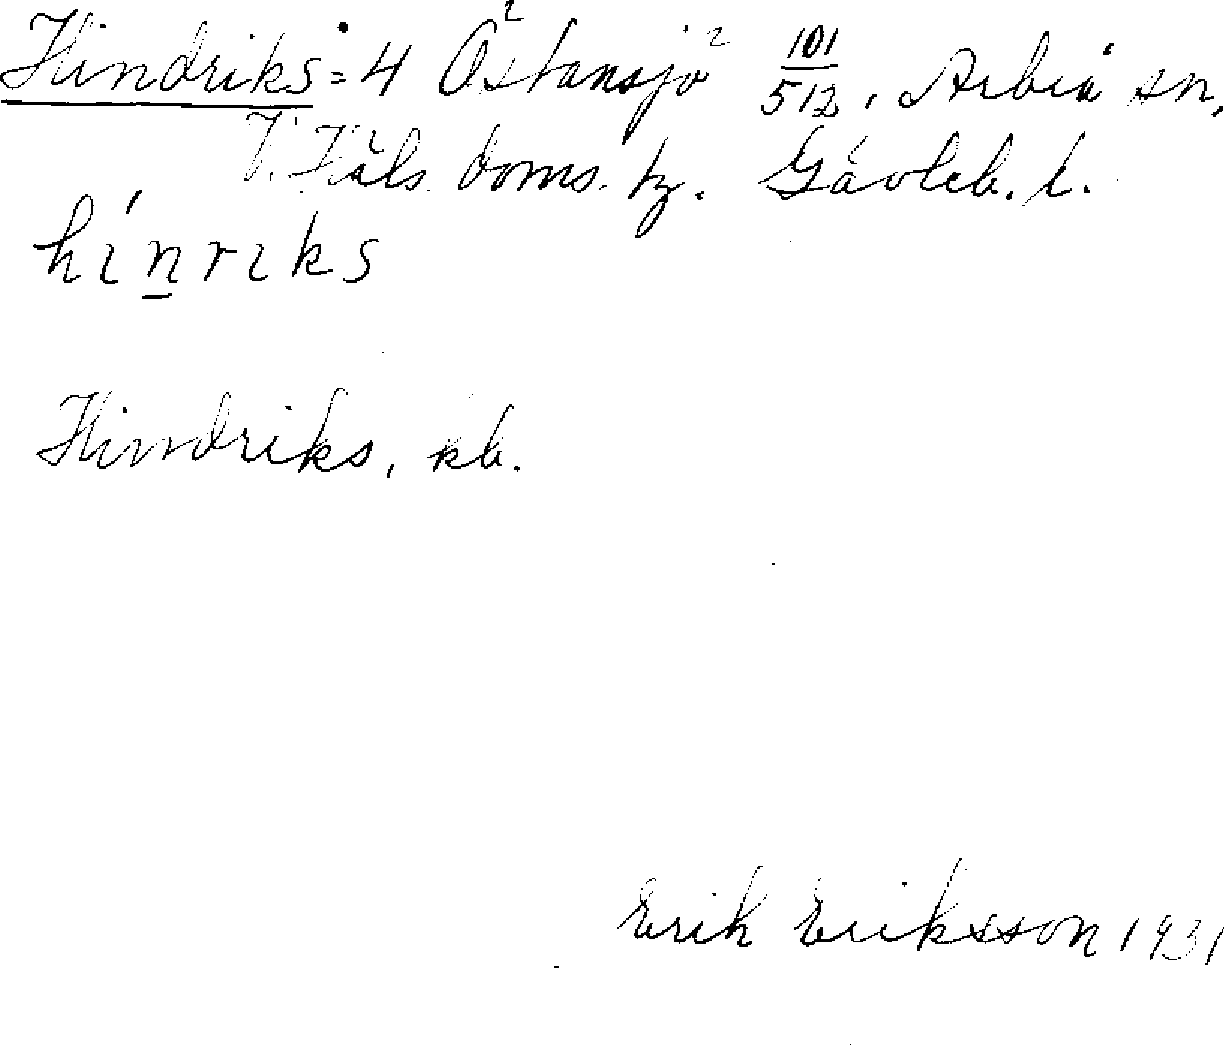 Hindriks = 4 Östansjö² 101/512, Arbrå sn,
V. Häls. doms. tg. Gävleb. l.
hínriks
Hindriks, kb.
Erik Eriksson 1931